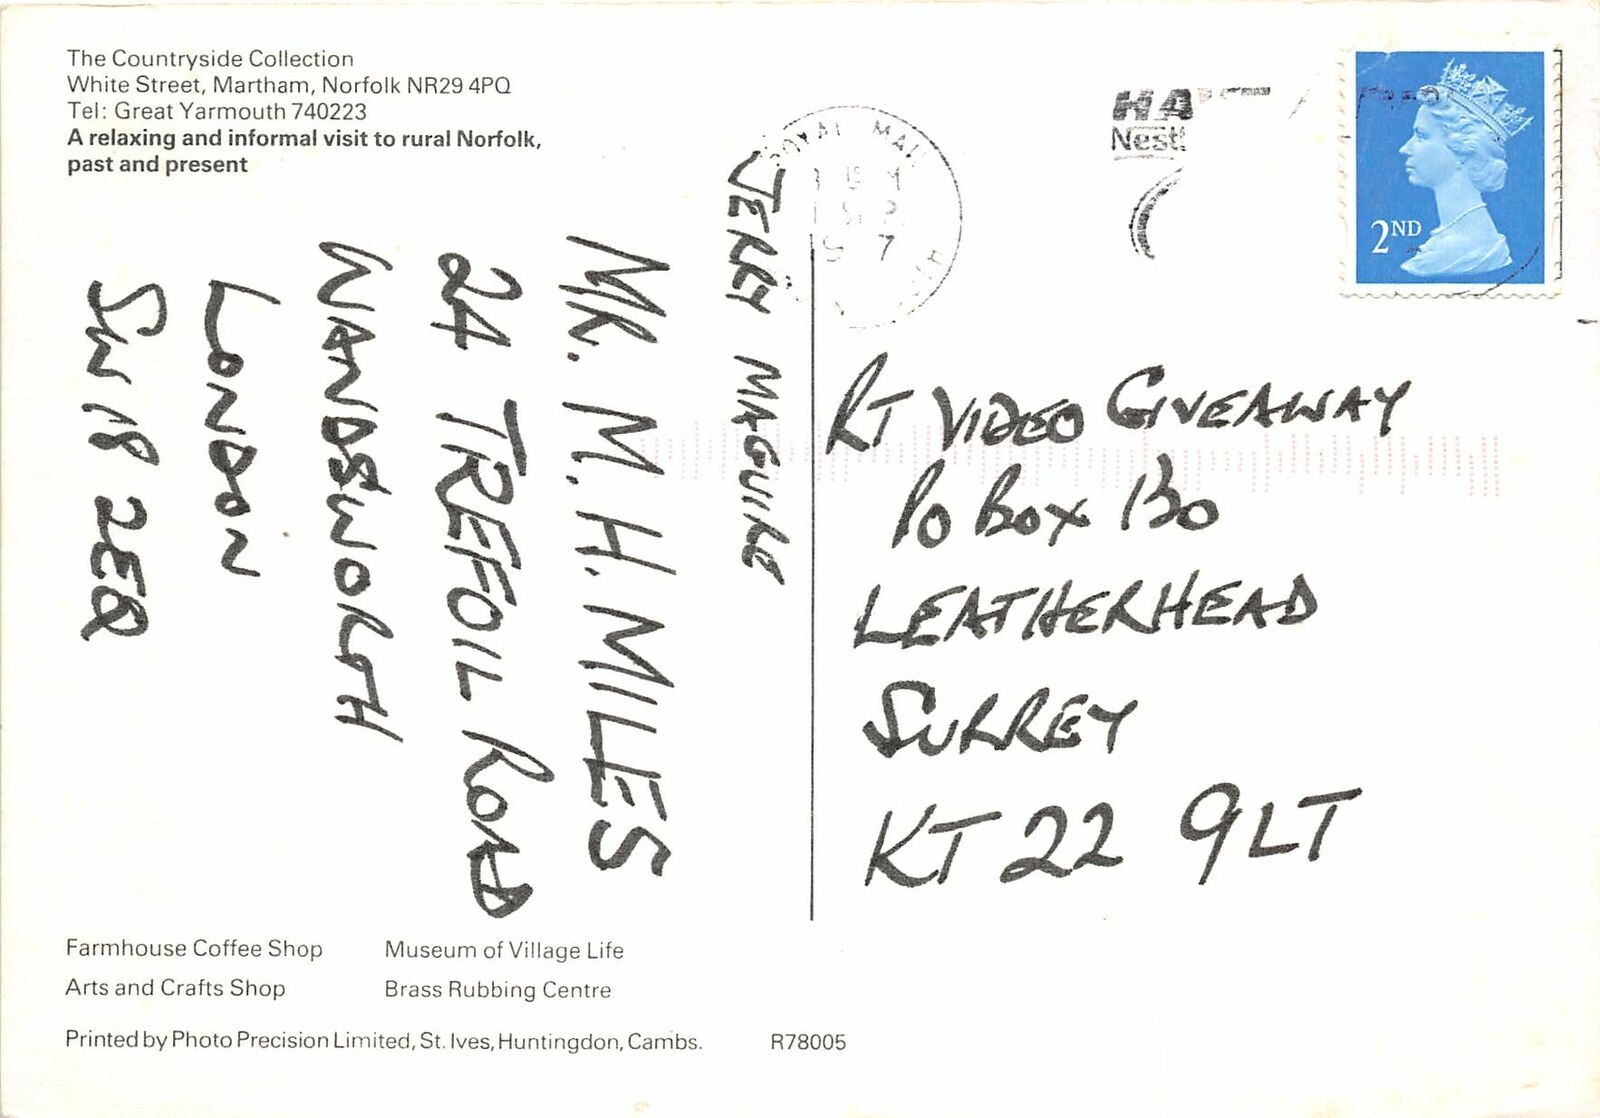 The Countryside Collection
White Street, Martham, Norfolk NR29 4PQ
Tel: Great Yarmouth 740223
A relaxing and informal visit to rural Norfolk,
past and present
ROYAL MAIL
SEP
2ND
JERRY MAGUIRE
MR. M. H. MILES
24 TREFOIL ROAD
WANDSWORTH
LONDON
SW 18 2EQ
RT VIDEO GIVEAWAY
PO BOX 130
LEATHERHEAD
SURREY
KT 22 9LT
Farmhouse Coffee Shop
Museum of Village Life
Arts and Crafts Shop
Brass Rubbing Centre
Printed by Photo Precision Limited, St. Ives, Huntingdon, Cambs. R78005